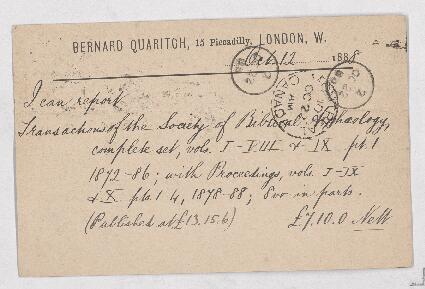 BERNARD QUARITCH, 15 Piccadilly, LONDON, W.
Oct. 12 1888
I can report
Transactions of the Society of Biblical Archaeology,
complete set, vols. I-VIII & IX pt. 1
1872-86; with Proceedings, vols. I-IX
& X pts. 1 4, 1878-88; 8vo in parts.
(Published at £13.15.6) £7.10.0 Nett
CANADA